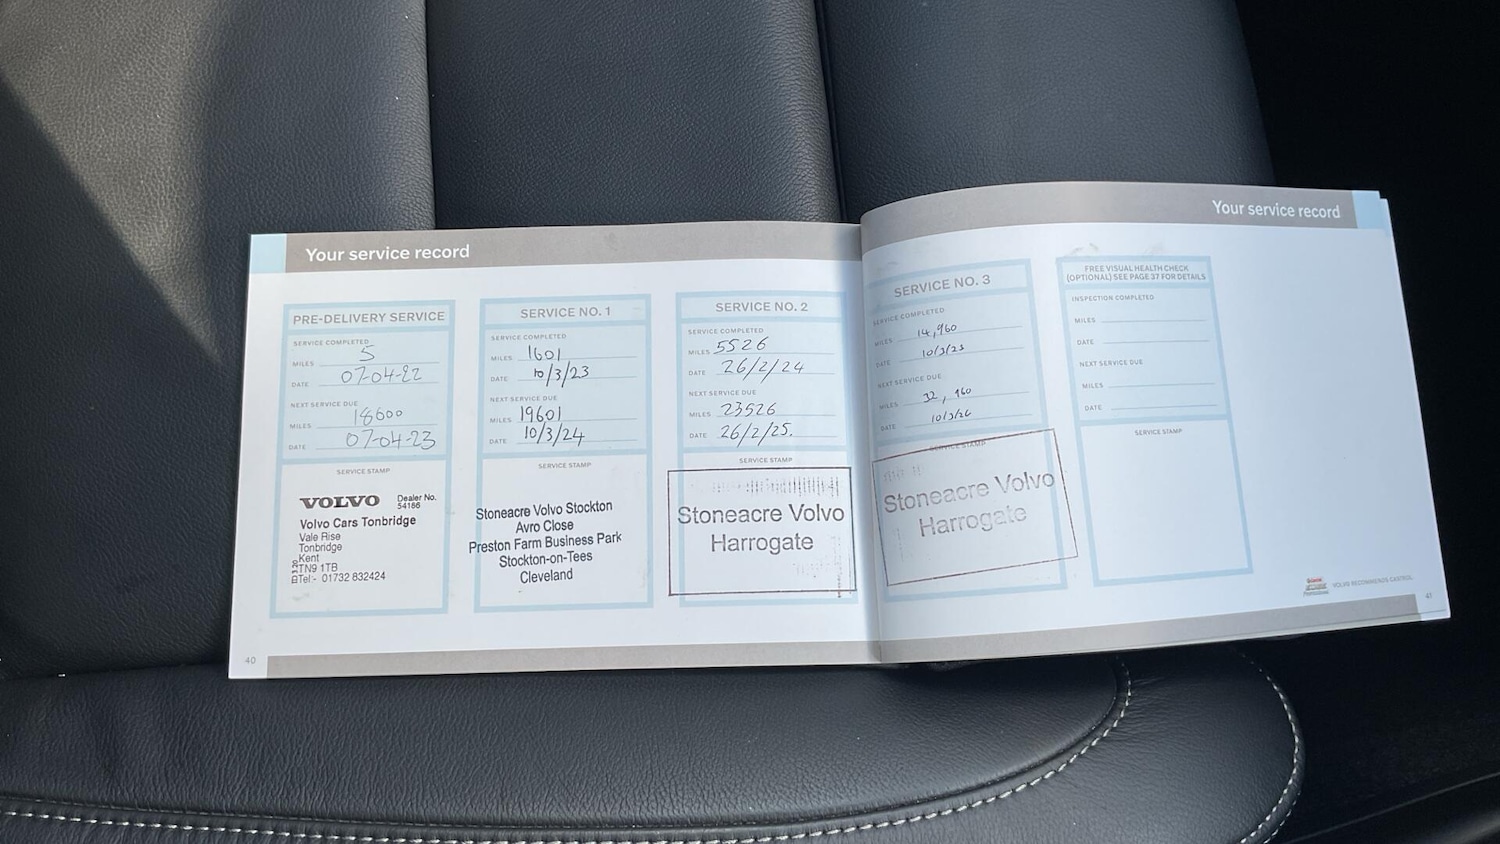 Your service record
PRE-DELIVERY SERVICE
SERVICE COMPLETED
MILES 5
DATE 07-04-22
NEXT SERVICE DUE
MILES 18600
DATE 07-04-23
SERVICE STAMP
VOLVO Dealer No.
54186
Volvo Cars Tonbridge
Vale Rise
Tonbridge
Kent
TN9 1TB
Tel:- 01732 832424
SERVICE NO. 1
SERVICE COMPLETED
MILES 1601
DATE 10/3/23
NEXT SERVICE DUE
MILES 19601
DATE 10/3/24
SERVICE STAMP
Stoneacre Volvo Stockton
Avro Close
Preston Farm Business Park
Stockton-on-Tees
Cleveland
SERVICE NO. 2
SERVICE COMPLETED
MILES 5526
DATE 26/2/24
NEXT SERVICE DUE
MILES 23526
DATE 26/2/25.
SERVICE STAMP
Stoneacre Volvo
Harrogate
40
Your service record
SERVICE NO. 3
SERVICE COMPLETED
MILES 14,960
DATE 10/3/25
NEXT SERVICE DUE
MILES 32,960
DATE 10/3/26
SERVICE STAMP
Stoneacre Volvo
Harrogate
FREE VISUAL HEALTH CHECK
(OPTIONAL) SEE PAGE 37 FOR DETAILS
INSPECTION COMPLETED
MILES
DATE
NEXT SERVICE DUE
MILES
DATE
SERVICE STAMP
VOLVO RECOMMENDS CASTROL
41